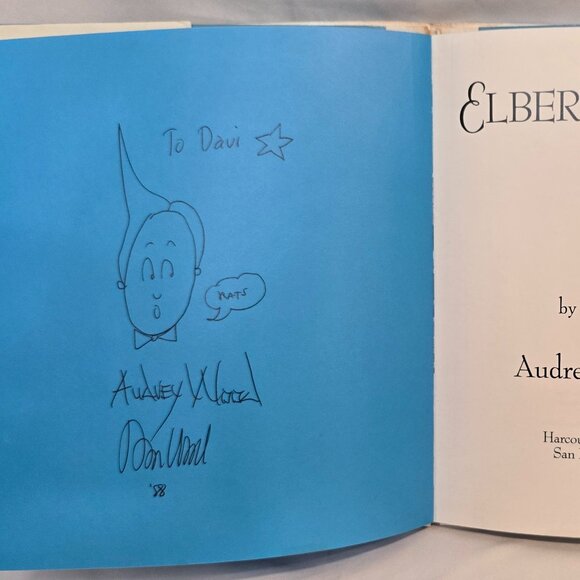 To Davi
RATS
AUDREY WOOD
Don Wood
'88
ELBER
by
Audre
Harcou
San